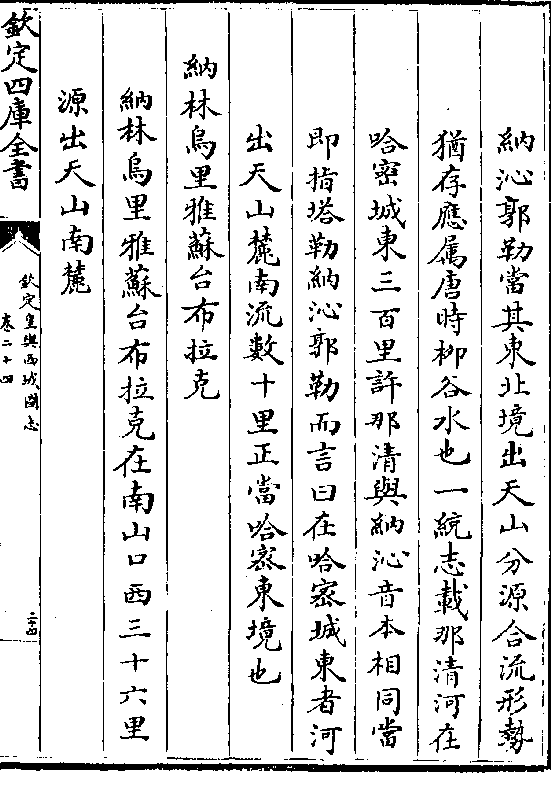 納沁郭勒當其東北境出天山分源合流形勢
猶存應属唐時柳谷水也一統志載那清河在
哈密城東三百里許那清與納沁音本相同當
即指塔勒納沁郭勒而言曰在哈密城東者河
出天山麓南流數十里正當哈密東境也
納林烏里雅蘇台布拉克
納林烏里雅蘇台布拉克在南山口西三十六里
源出天山南麓
欽定四庫全書
欽定皇輿西域圖志
卷二十四
二十四